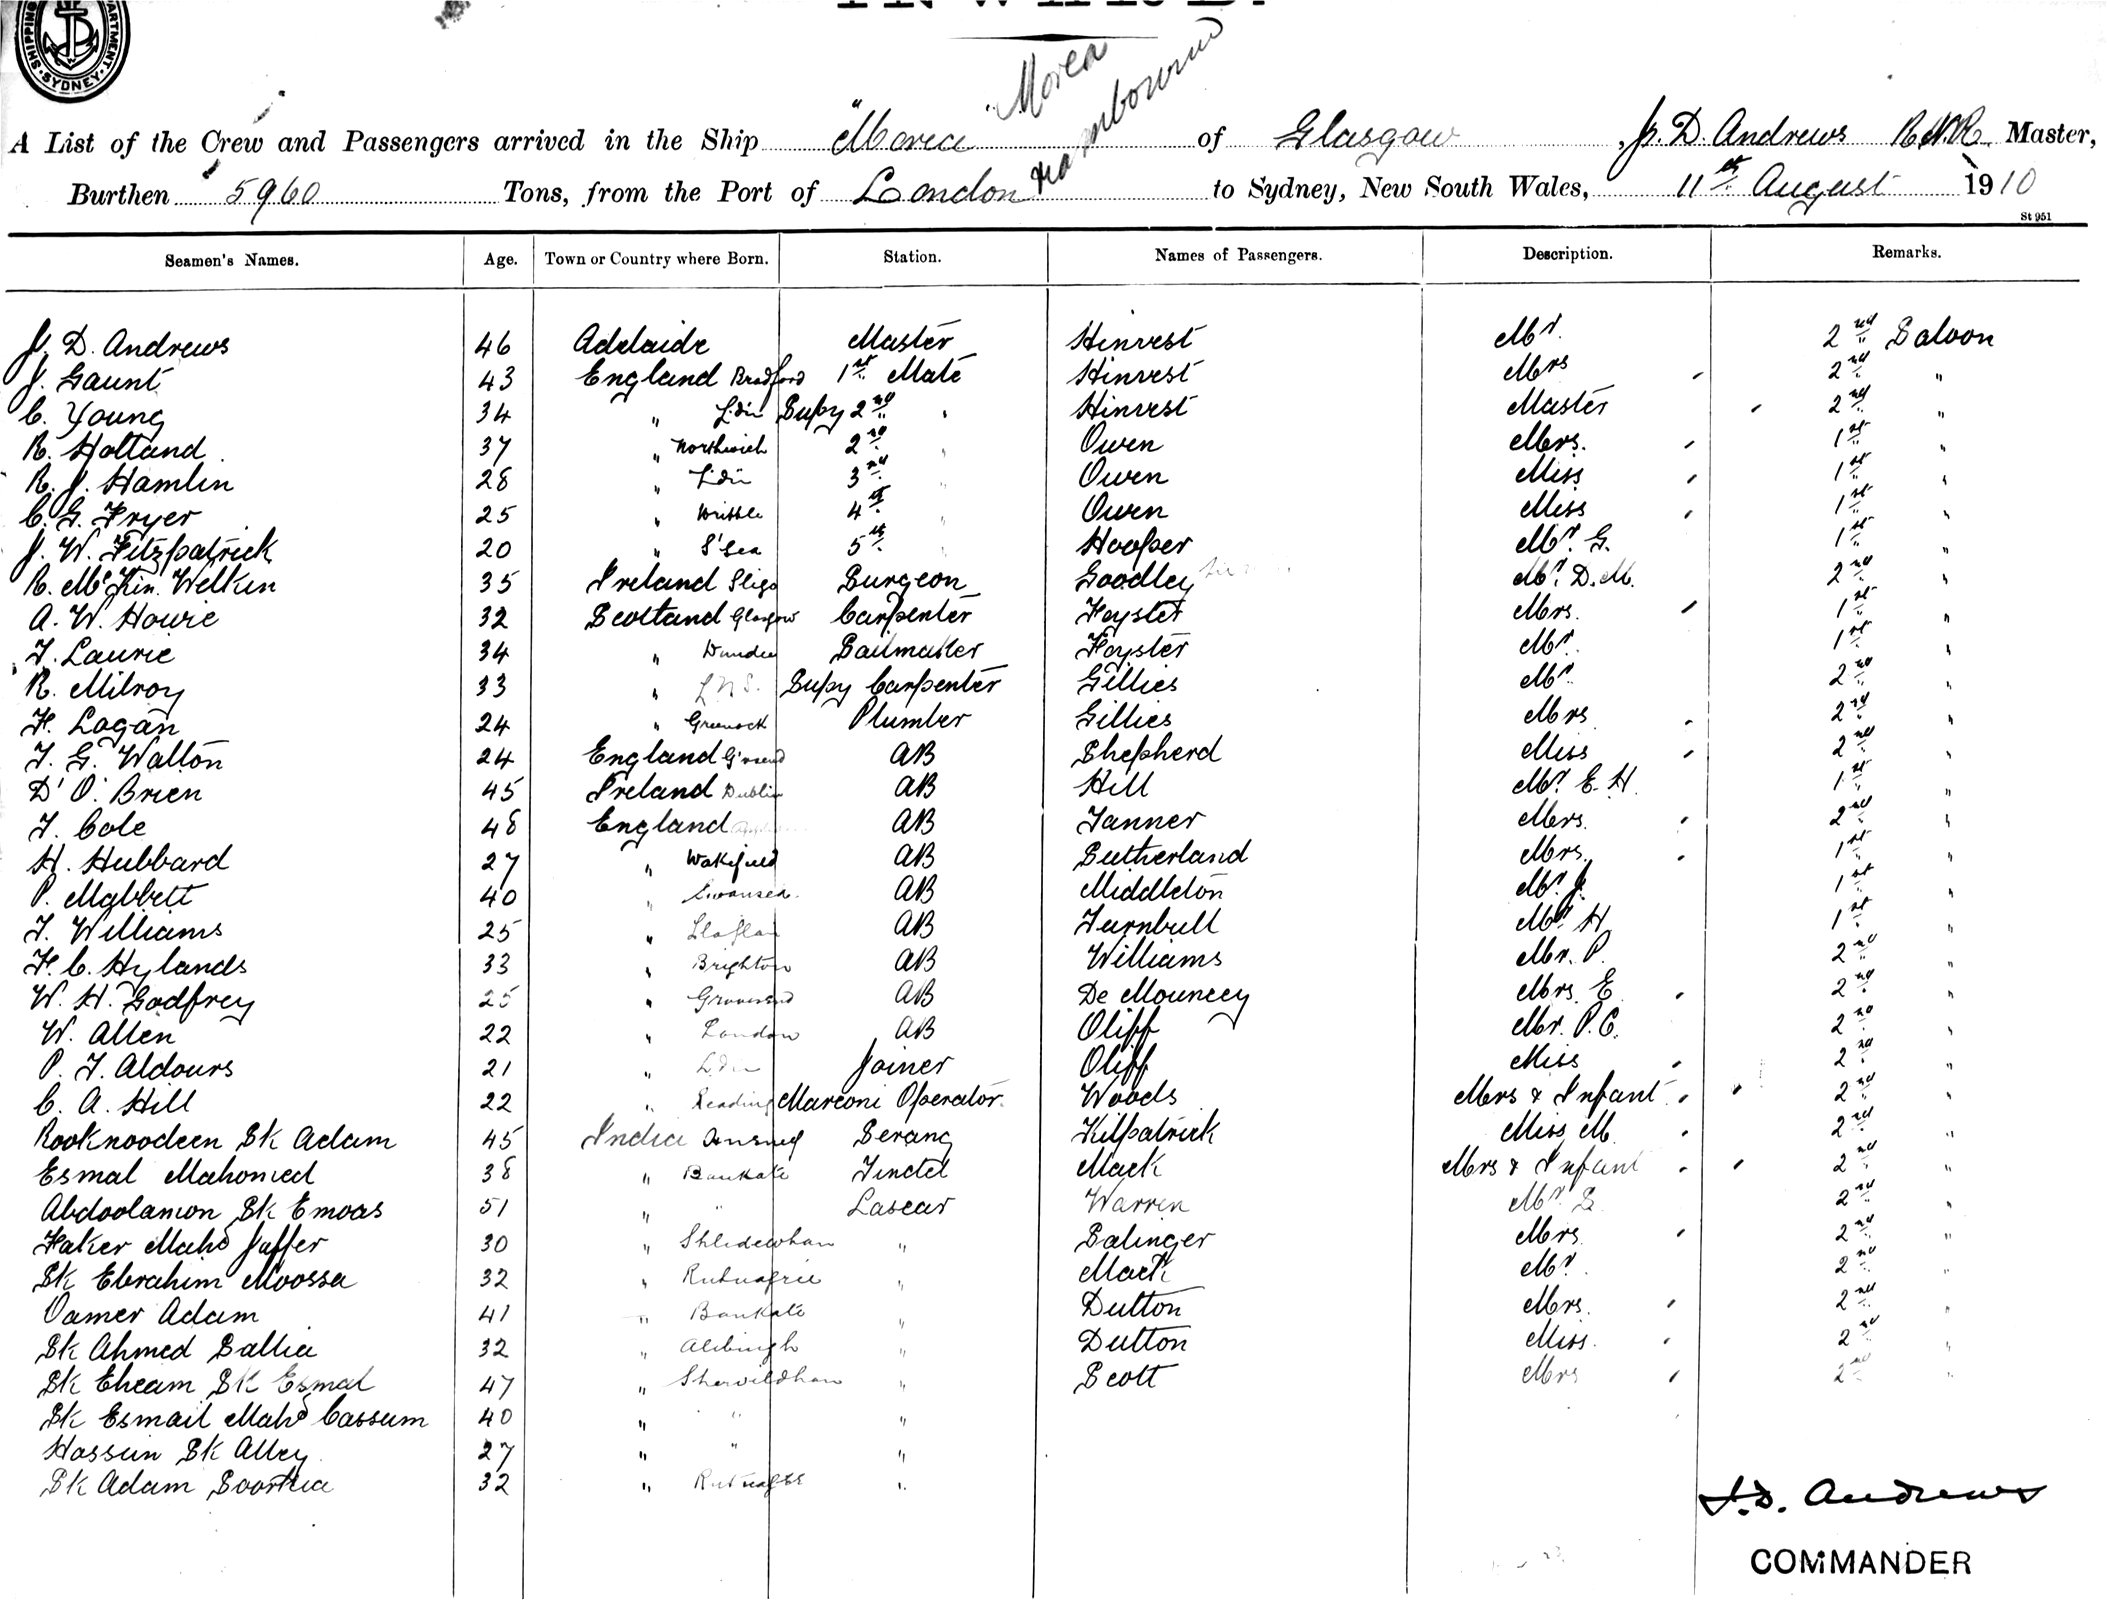 SHIPPING DEPARTMENT
SYDNEY
INWARD.
"Morea
A List of the Crew and Passengers arrived in the Ship "Morea of Glasgow, J. D. Andrews R.N.R. Master,
Burthen 5960 Tons, from the Port of London via to Sydney, New South Wales, 11th August 1910
St 951
Seamen's Names. Age. Town or Country where Born. Station. Names of Passengers. Description. Remarks.
J. D. Andrews 46 Adelaide Master Hinvest Mr. 2nd Saloon
J. Gaunt 43 England Bradford 1st Mate Hinvest Mrs 2nd "
C. Young 34 " Ldn Supy 2nd " Hinvest Master 2nd "
R. Holland 37 " Northwich 2nd " Owen Mrs. 1st "
R. J. Hamlin 28 " Ldn 3rd " Owen Miss 1st "
C. G. Fryer 25 " Writtle 4th " Owen Miss 1st "
J. W. Fitzpatrick 20 " S'Sea 5th " Hooper Mr. G. 1st "
R. McKin. Welkin 35 Ireland Sligo Surgeon Goodley Mr. D. M. 2nd "
A. W. Howie 32 Scotland Glasgow Carpenter Foyster Mrs. 1st "
J. Laurie 34 " Dundee Sailmaker Foyster Mr. 1st "
R. Milroy 33 " Supy Carpenter Gillies Mr. 2nd "
F. Logan 24 " Greenock Plumber Gillies Mrs 2nd "
T. G. Walton 24 England G'vsend AB Shepherd Miss 2nd "
D' O' Brien 45 Ireland Dublin AB Hill Mr. E. H. 1st "
T. Cole 48 England AB Tanner Mrs. 2nd "
H. Hubbard 27 " Wakefield AB Sutherland Mrs. 1st "
P. Mabbett 40 " Swansea. AB Middleton Mr. J. 1st "
T. Williams 25 " AB Turnbull Mr. H. 1st "
F. C. Hylands 33 " Brighton AB Williams Mr. P. 2nd "
W. H. Godfrey 25 " Gravesend AB De Mouncey Mrs. E. 2nd "
W. Allen 22 " London AB Oliff Mr. P. C. 2nd "
P. T. Aldours 21 " Ldn Joiner Oliff Miss 2nd "
C. A. Hill 22 " Reading Marconi Operator. Woods Mrs & Infant. 2nd "
Rooknoodeen Sk Adam 45 India Serang Kilpatrick Miss M. 2nd "
Esmal Mahomed 38 " Bankate Tindel Mack Mrs & Infant 2nd "
Abdoolamon Sk Emoas 51 " " Lascar Warren Mr. S. 2nd "
Faker Mahd Jaffer 30 " " Salinger Mrs. 2nd "
Sk Ebrahim Moossa 32 " " Mack Mr. 2nd "
Oamer Adam 41 " Bankate " Dutton Mrs. 2nd "
Sk Ahmed Sallia 32 " Alibingh " Dutton Miss. 2nd "
Sk Eheam Sk Esmal 47 " " Scott Mrs 2nd "
Sk Esmail Mahd Cassum 40 " " "
Hassein Sk Alley 27 " " "
Sk Adam 32 " "
J. D. Andrews
COMMANDER